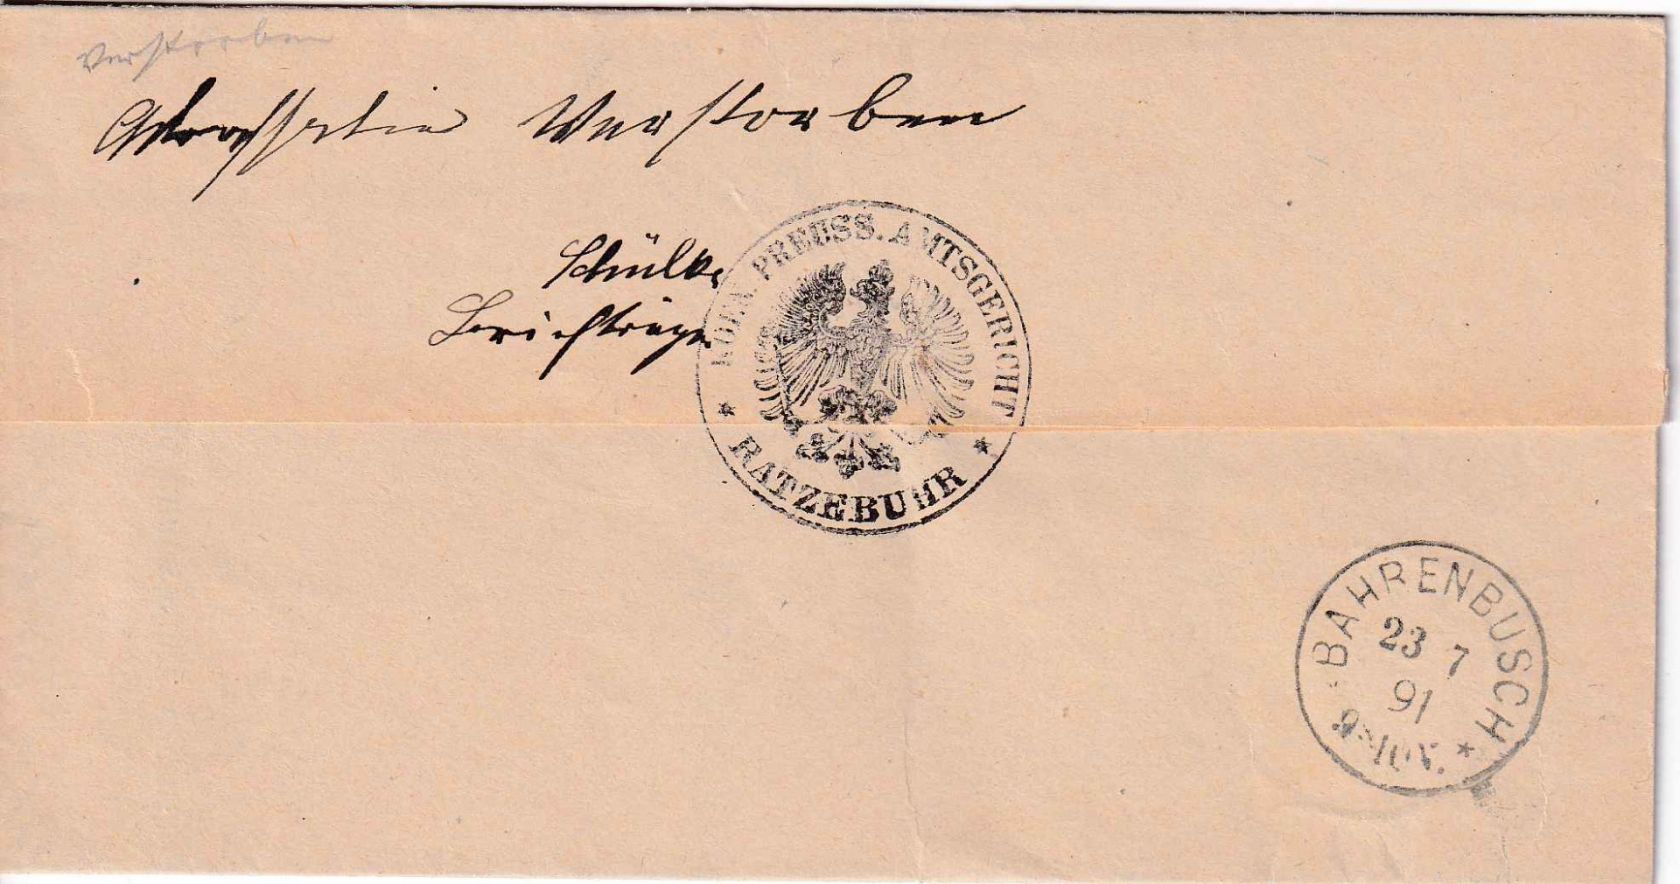 verstorben
Adressatin Verstorben
Schülke
Briefträger
KOEN. PREUSS. AMTSGERICHT
* RATZEBUHR *
BAHRENBUSCH
23 7
91
9-10V. *